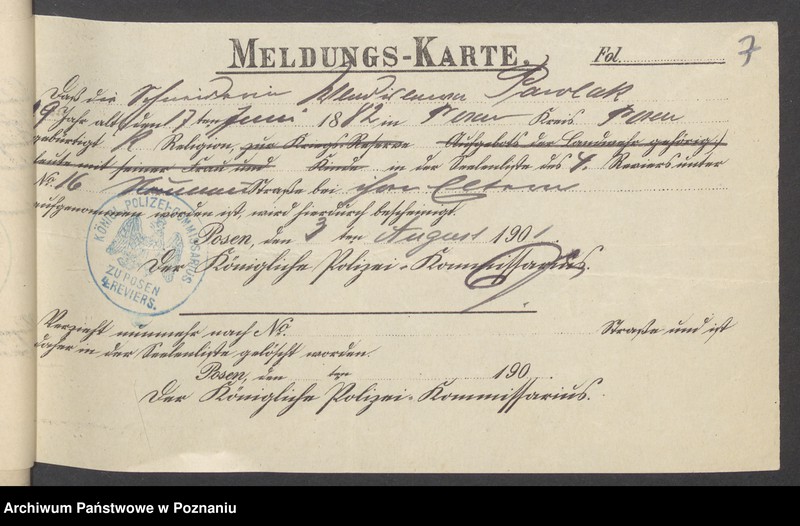 MELDUNGS-KARTE.
Fol. 7
Daß die Schneiderin Wladislawa Pawlak
19 Jahr alt, den 17 ten Juni 1882 in Posen Kreis Posen
gebürtigt K Religion, zur Kriegs-Reserve Aufgebots der Landwehr gehörig,
laute mit seiner Frau und Kinde in der Seelenliste des 4. Reviers unter
No. 16 Straße bei den Eltern
aufgenommen worden ist, wird hierdurch bescheinigt.
Posen, den 3 ten August 1901
Der Königliche Polizei-Kommissarius.
KÖNIGL. POLIZEI-COMMISSARIUS
ZU POSEN
4. REVIERS.
Verzieht nunmehr nach No. Straße und ist
daher in der Seelenliste gelöscht worden.
Posen, den ten 190
Der Königliche Polizei-Kommissarius.
Archiwum Państwowe w Poznaniu